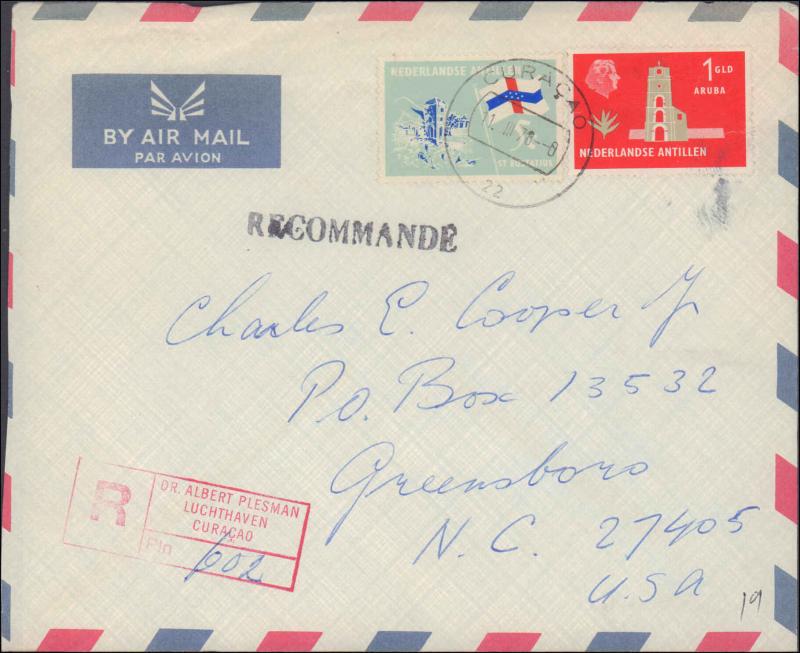 BY AIR MAIL
PAR AVION
NEDERLANDSE ANTILLEN
ST EUSTATIUS
CURAÇAO
22
1 GLD
ARUBA
NEDERLANDSE ANTILLEN
RECOMMANDÉ
Charles E. Cooper Jr
P.O. Box 13532
Greensboro
N.C. 27405
U.S.A
R
DR. ALBERT PLESMAN
LUCHTHAVEN
CURAÇAO
Pln
602
19